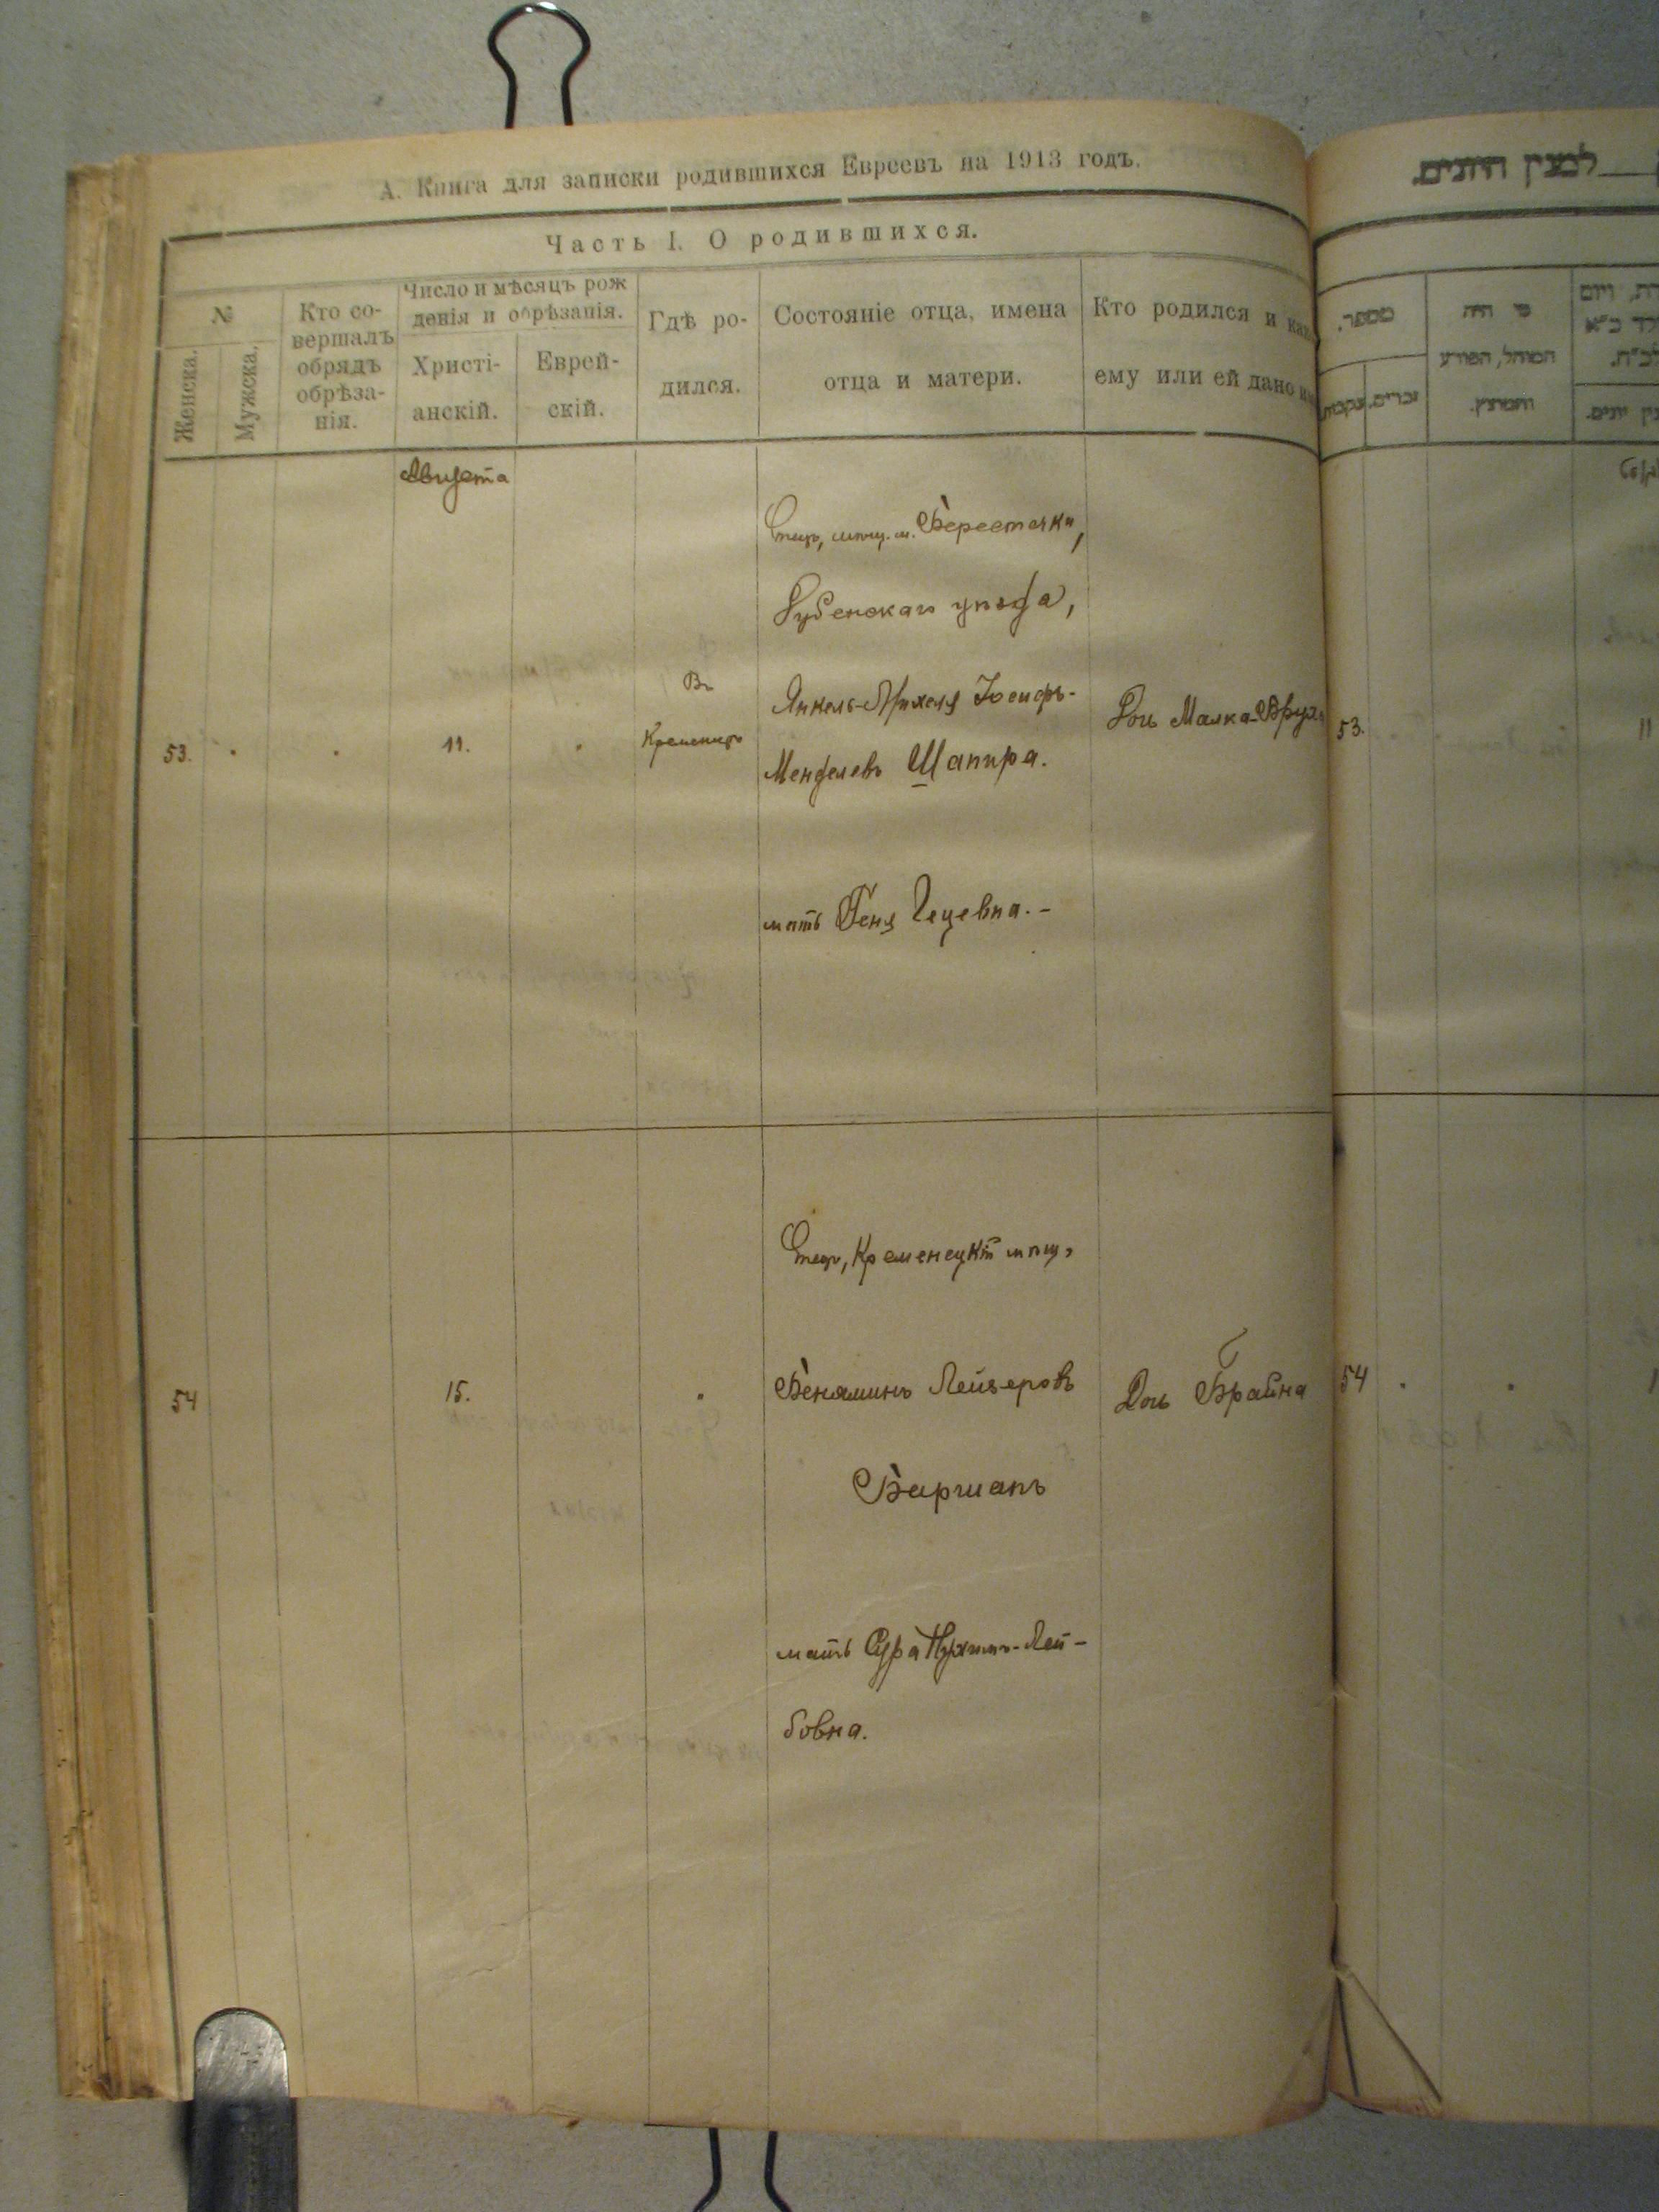 А. Книга для записки родившихся Евреевъ на 1913 годъ.
Часть I. О родившихся.
№
Женска.
Мужска.
Кто со-
вершалъ
обрядъ
обрѣза-
нія.
Число и мѣсяцъ рож
денія и обрѣзанія.
Христі-
анскій.
Еврей-
скій.
Гдѣ ро-
дился.
Состояніе отца, имена
отца и матери.
Кто родился и как
ему или ей дано им
Августа
53.
11.
Въ
Кременцѣ
Отецъ, мѣщ. м. Берестечка,
Дубенскаго уѣзда,
Янкель-Михель Іосифъ-
Менделевъ Шапира.
мать Геня Гецевна.-
Дочь Малка-Брух
54
15.
Отецъ, Кременецкій мѣщ.
Беняминъ Лейзеровъ
Баршапъ
мать Сура Нухимъ-Лей-
бовна.
Дочь Брайна
לבנין היונים.
מספר.
זכרים.
נקבות
מי היה
המוהל, הפורע
והמוצץ.
53.
11
54